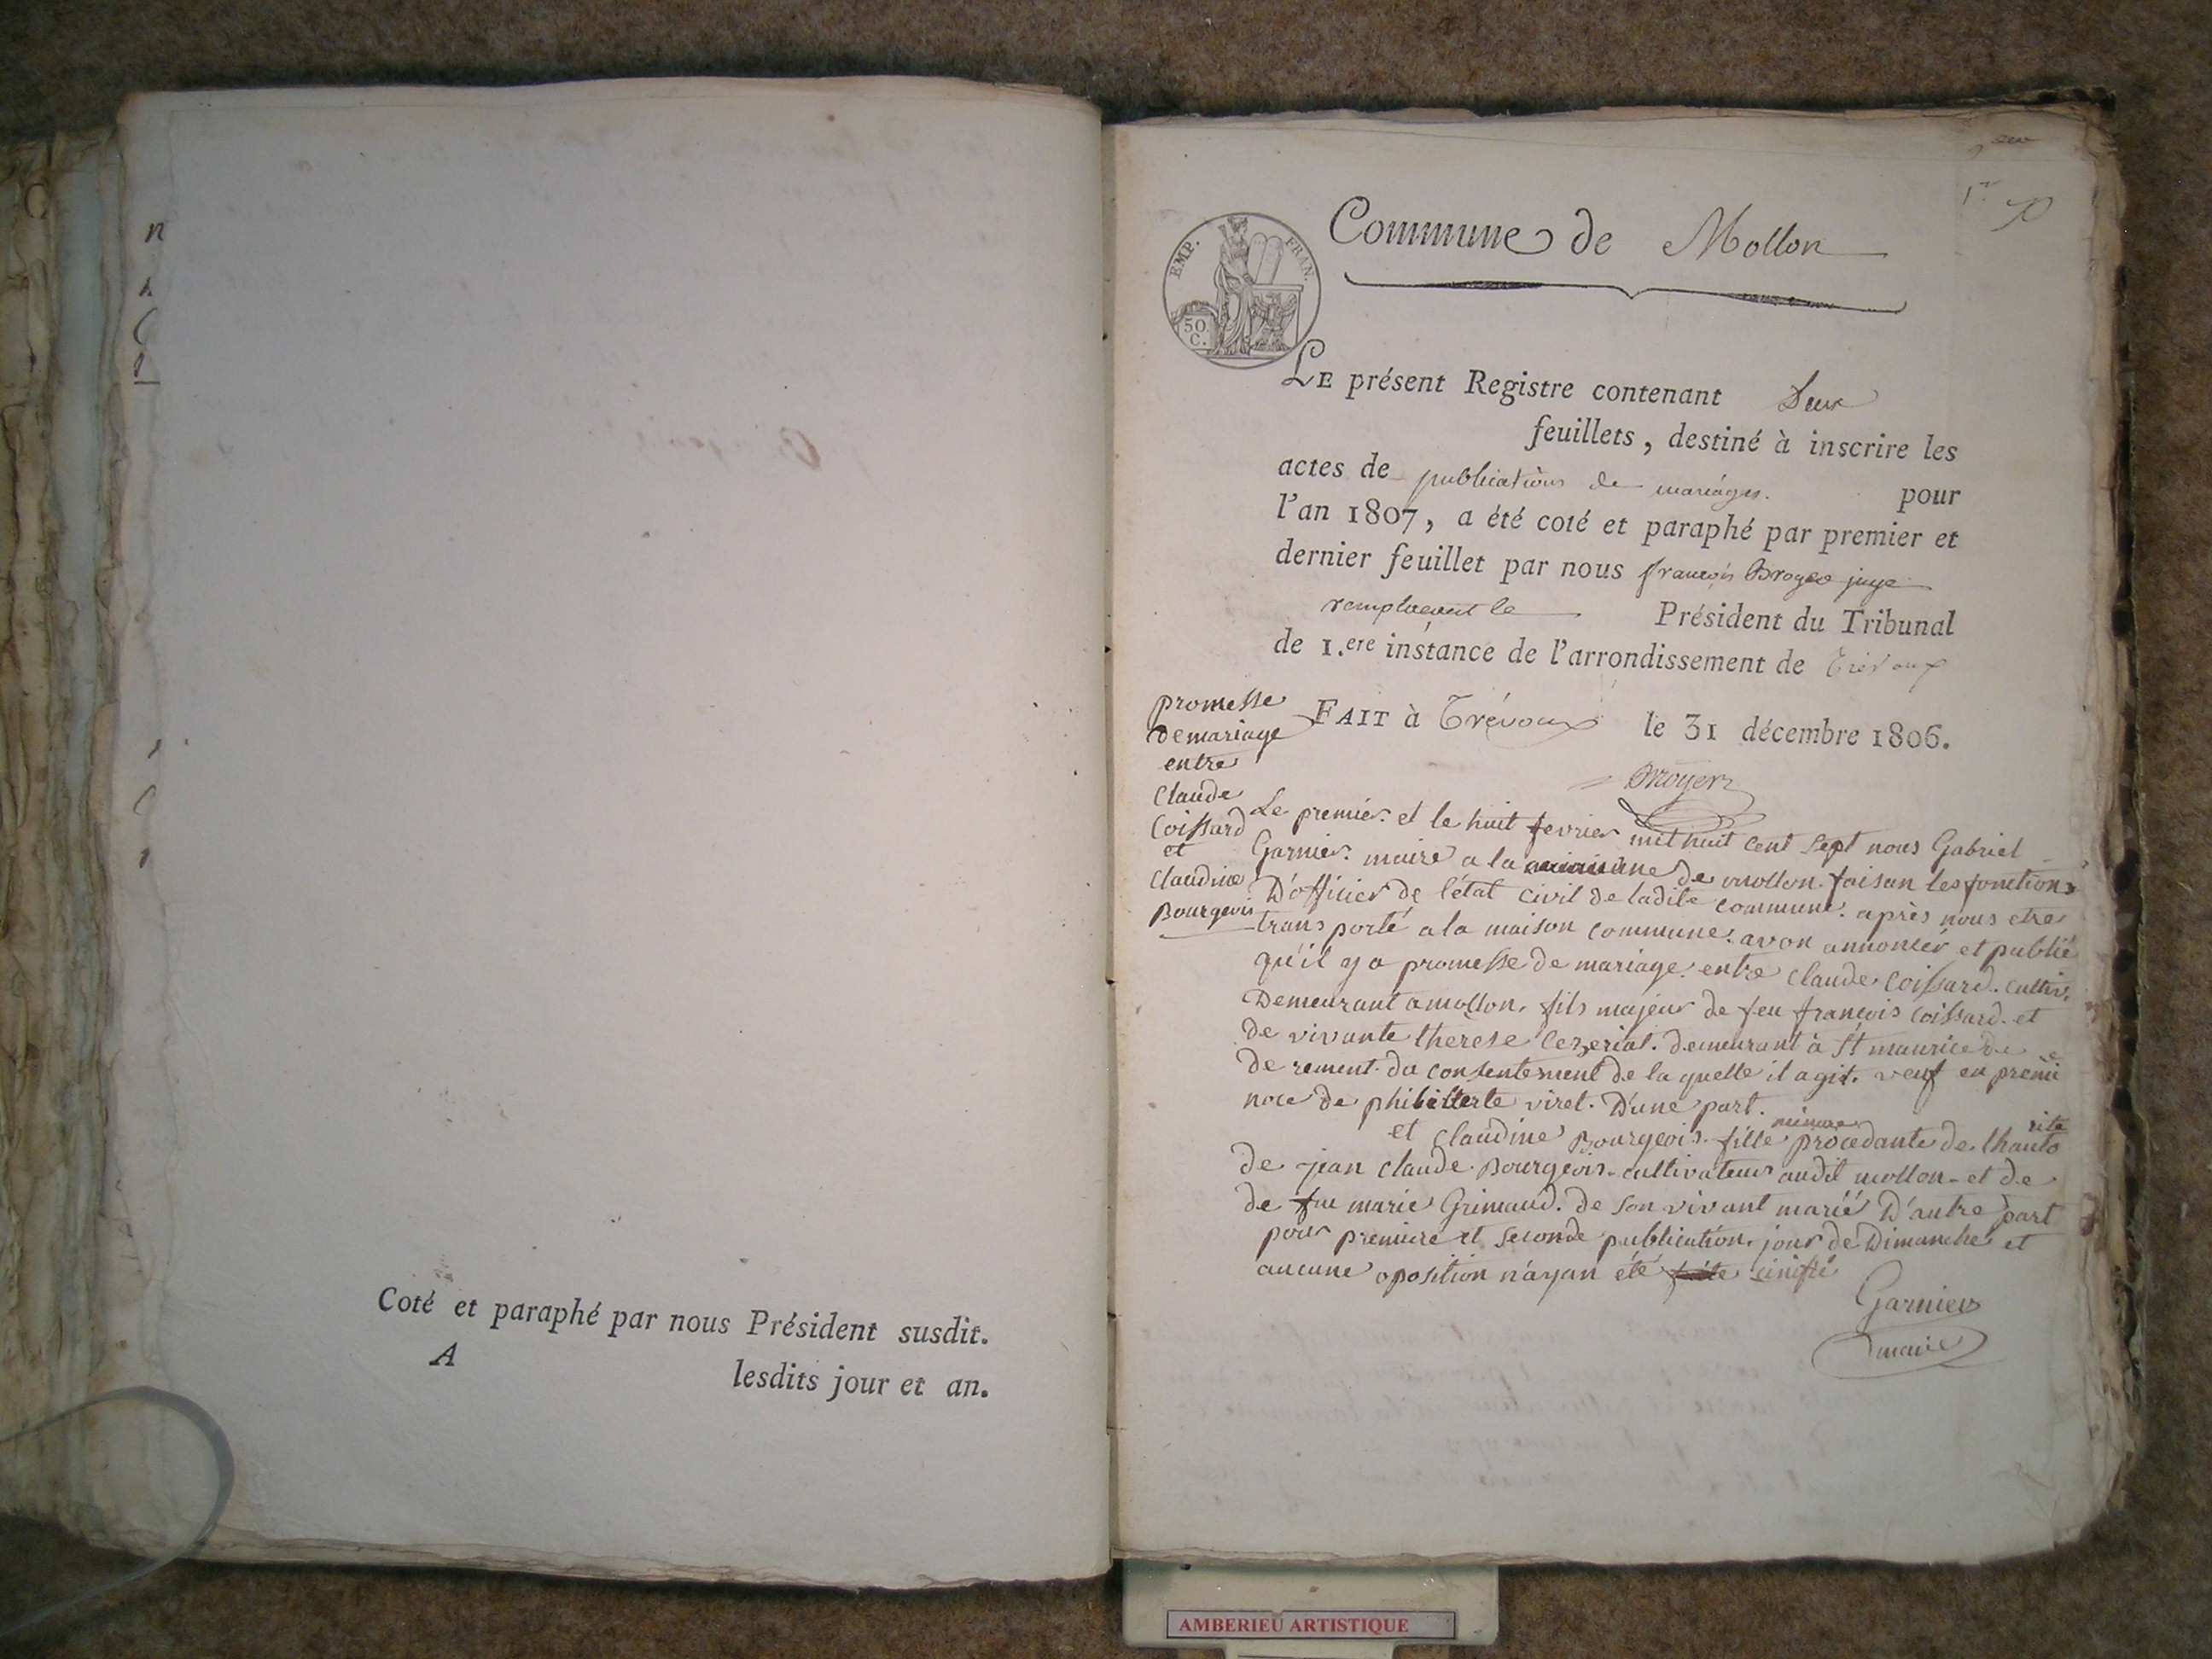 Coté et paraphé par nous Président susdit.
A lesdits jour et an.
1er
Commune de Mollon
EMP. FRAN.
50 C.
LE présent Registre contenant Deux
feuillets, destiné à inscrire les
actes de publications de mariages. pour
l'an 1807, a été coté et paraphé par premier et
dernier feuillet par nous françois Broyer juge
remplacent le Président du Tribunal
de 1.ere instance de l'arrondissement de Trévoux
FAIT à Trévoux le 31 décembre 1806.
Broyer
promesse
de mariage
entre
Claude
Coissard
et
Claudine
Bourgeois
Le premier et le huit fevrier mil huit cent sept nous Gabriel
Garnier. maire a la commune de mollon. faisan les fonctions
D'officier de l'état civil de ladite commune. après nous etre
transporté a la maison commune. avon annoncér et publié
qu'il y a promesse de mariage. entre claude Coissard. cultiv.
Demeurant a mollon. fils majeur de feu françois Coissard. et
de vivante therese Cezeriat. demeurant à St maurice de
de rement. du consentement de la quelle il agit. veuf en premie
noce de philiberte viret. D'une part.
et Claudine Bourgeois. fille mineure procedante de lhautorité
de jean claude Bourgeois. cultivateur audit mollon. et de
de feu marie Grimaud. de son vivant marié D'autre part
pour premiere et seconde publication. jour de Dimanche et
aucune oposition n'ayan été
Garnier
maire
AMBERIEU ARTISTIQUE